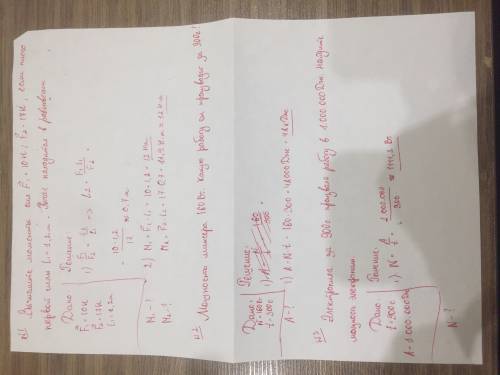 №1 Вычислите моменты сил F₁ = 10 Н; F₂ = 17 Н, если плечо
первой силы L = 1,2 м. Рычаг находится в равновесии.
Дано:
F₁ = 10 Н
F₂ = 17 Н
L₁ = 1,2 м
M₁ - ?
M₂ - ?
Решение:
1) F₁/F₂ = L₂/L₁ => L₂ = F₁·L₁/F₂ =
= 10·1,2/17 ≈ 0,7 м
2) M₁ = F₁·L₁ = 10·1,2 = 12 Нм
M₂ = F₂·L₂ = 17·0,7 = 11,9 Нм ≈ 12 Нм
№2 Мощность миксера 160 Вт. Какую работу он произведёт за 300 с?
Дано:
N = 160 Вт
t = 300 с
A - ?
Решение:
1) A = N·t = 160·300 = 48000 Дж = 48 кДж
№3 Электропила за 900 с произвела работу в 1.000.000 Дж. Найдите
мощность электропилы.
Дано:
t = 900 с
A = 1.000.000 Дж
N - ?
Решение:
1) N = A/t = 1.000.000/900 ≈ 1111,1 Вт